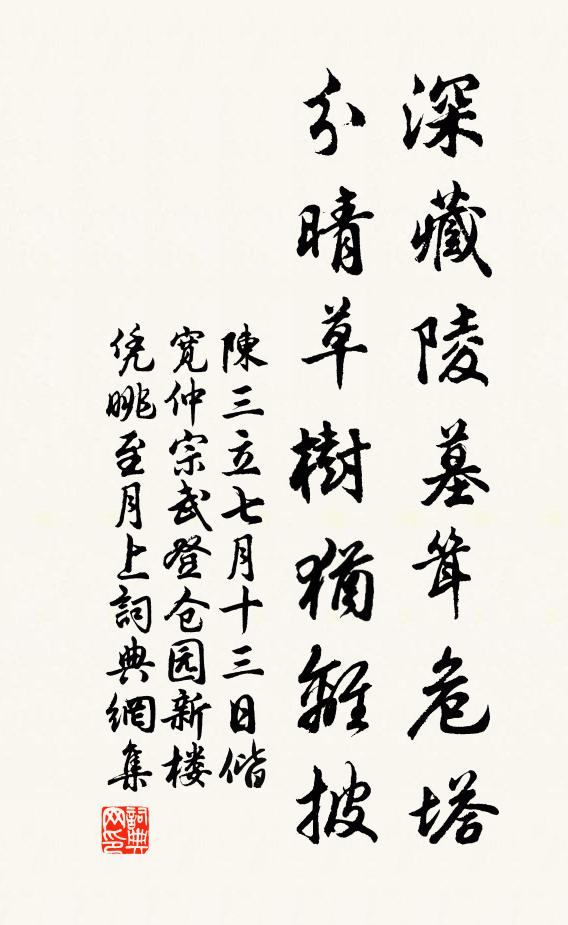 深藏陵墓聳危塔
分晴草樹猶離披
陳三立七月十三日偕
寬仲宗武登仓园新楼
凭眺至月上詞典網集
詞典
网印